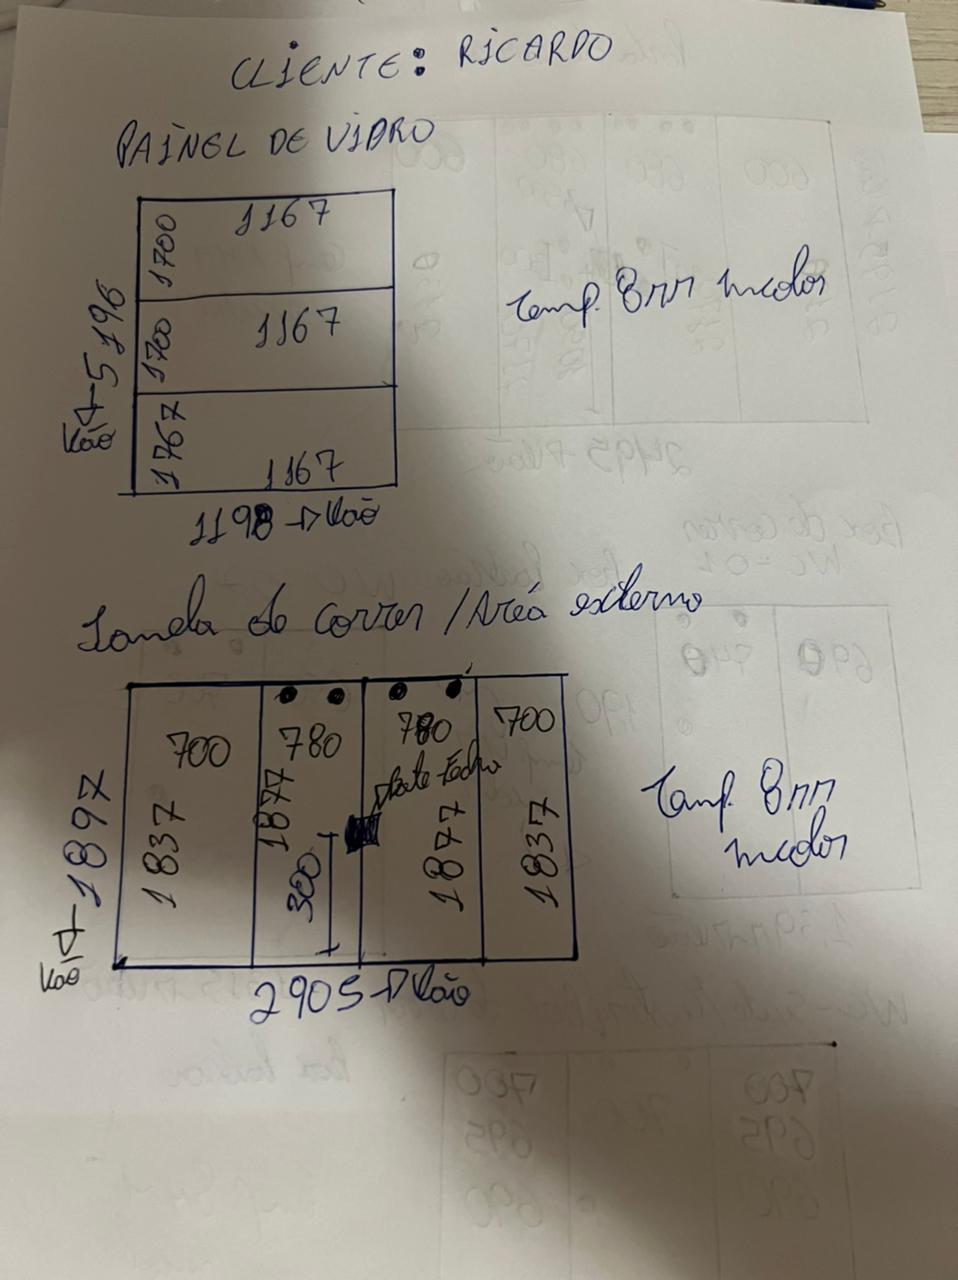 CLIENTE: RICARDO
PAINEL DE VIDRO
1700 1167
1700 1167
1767 1167
Vão 5196
1198 → Vão
Temp. 8mm incolor
Janela de correr / Área externo
700 780 780 700
1837 1877 1877 1837
Bate-Fecho
300
Vão 1897
2905 → Vão
Temp. 8mm
incolor